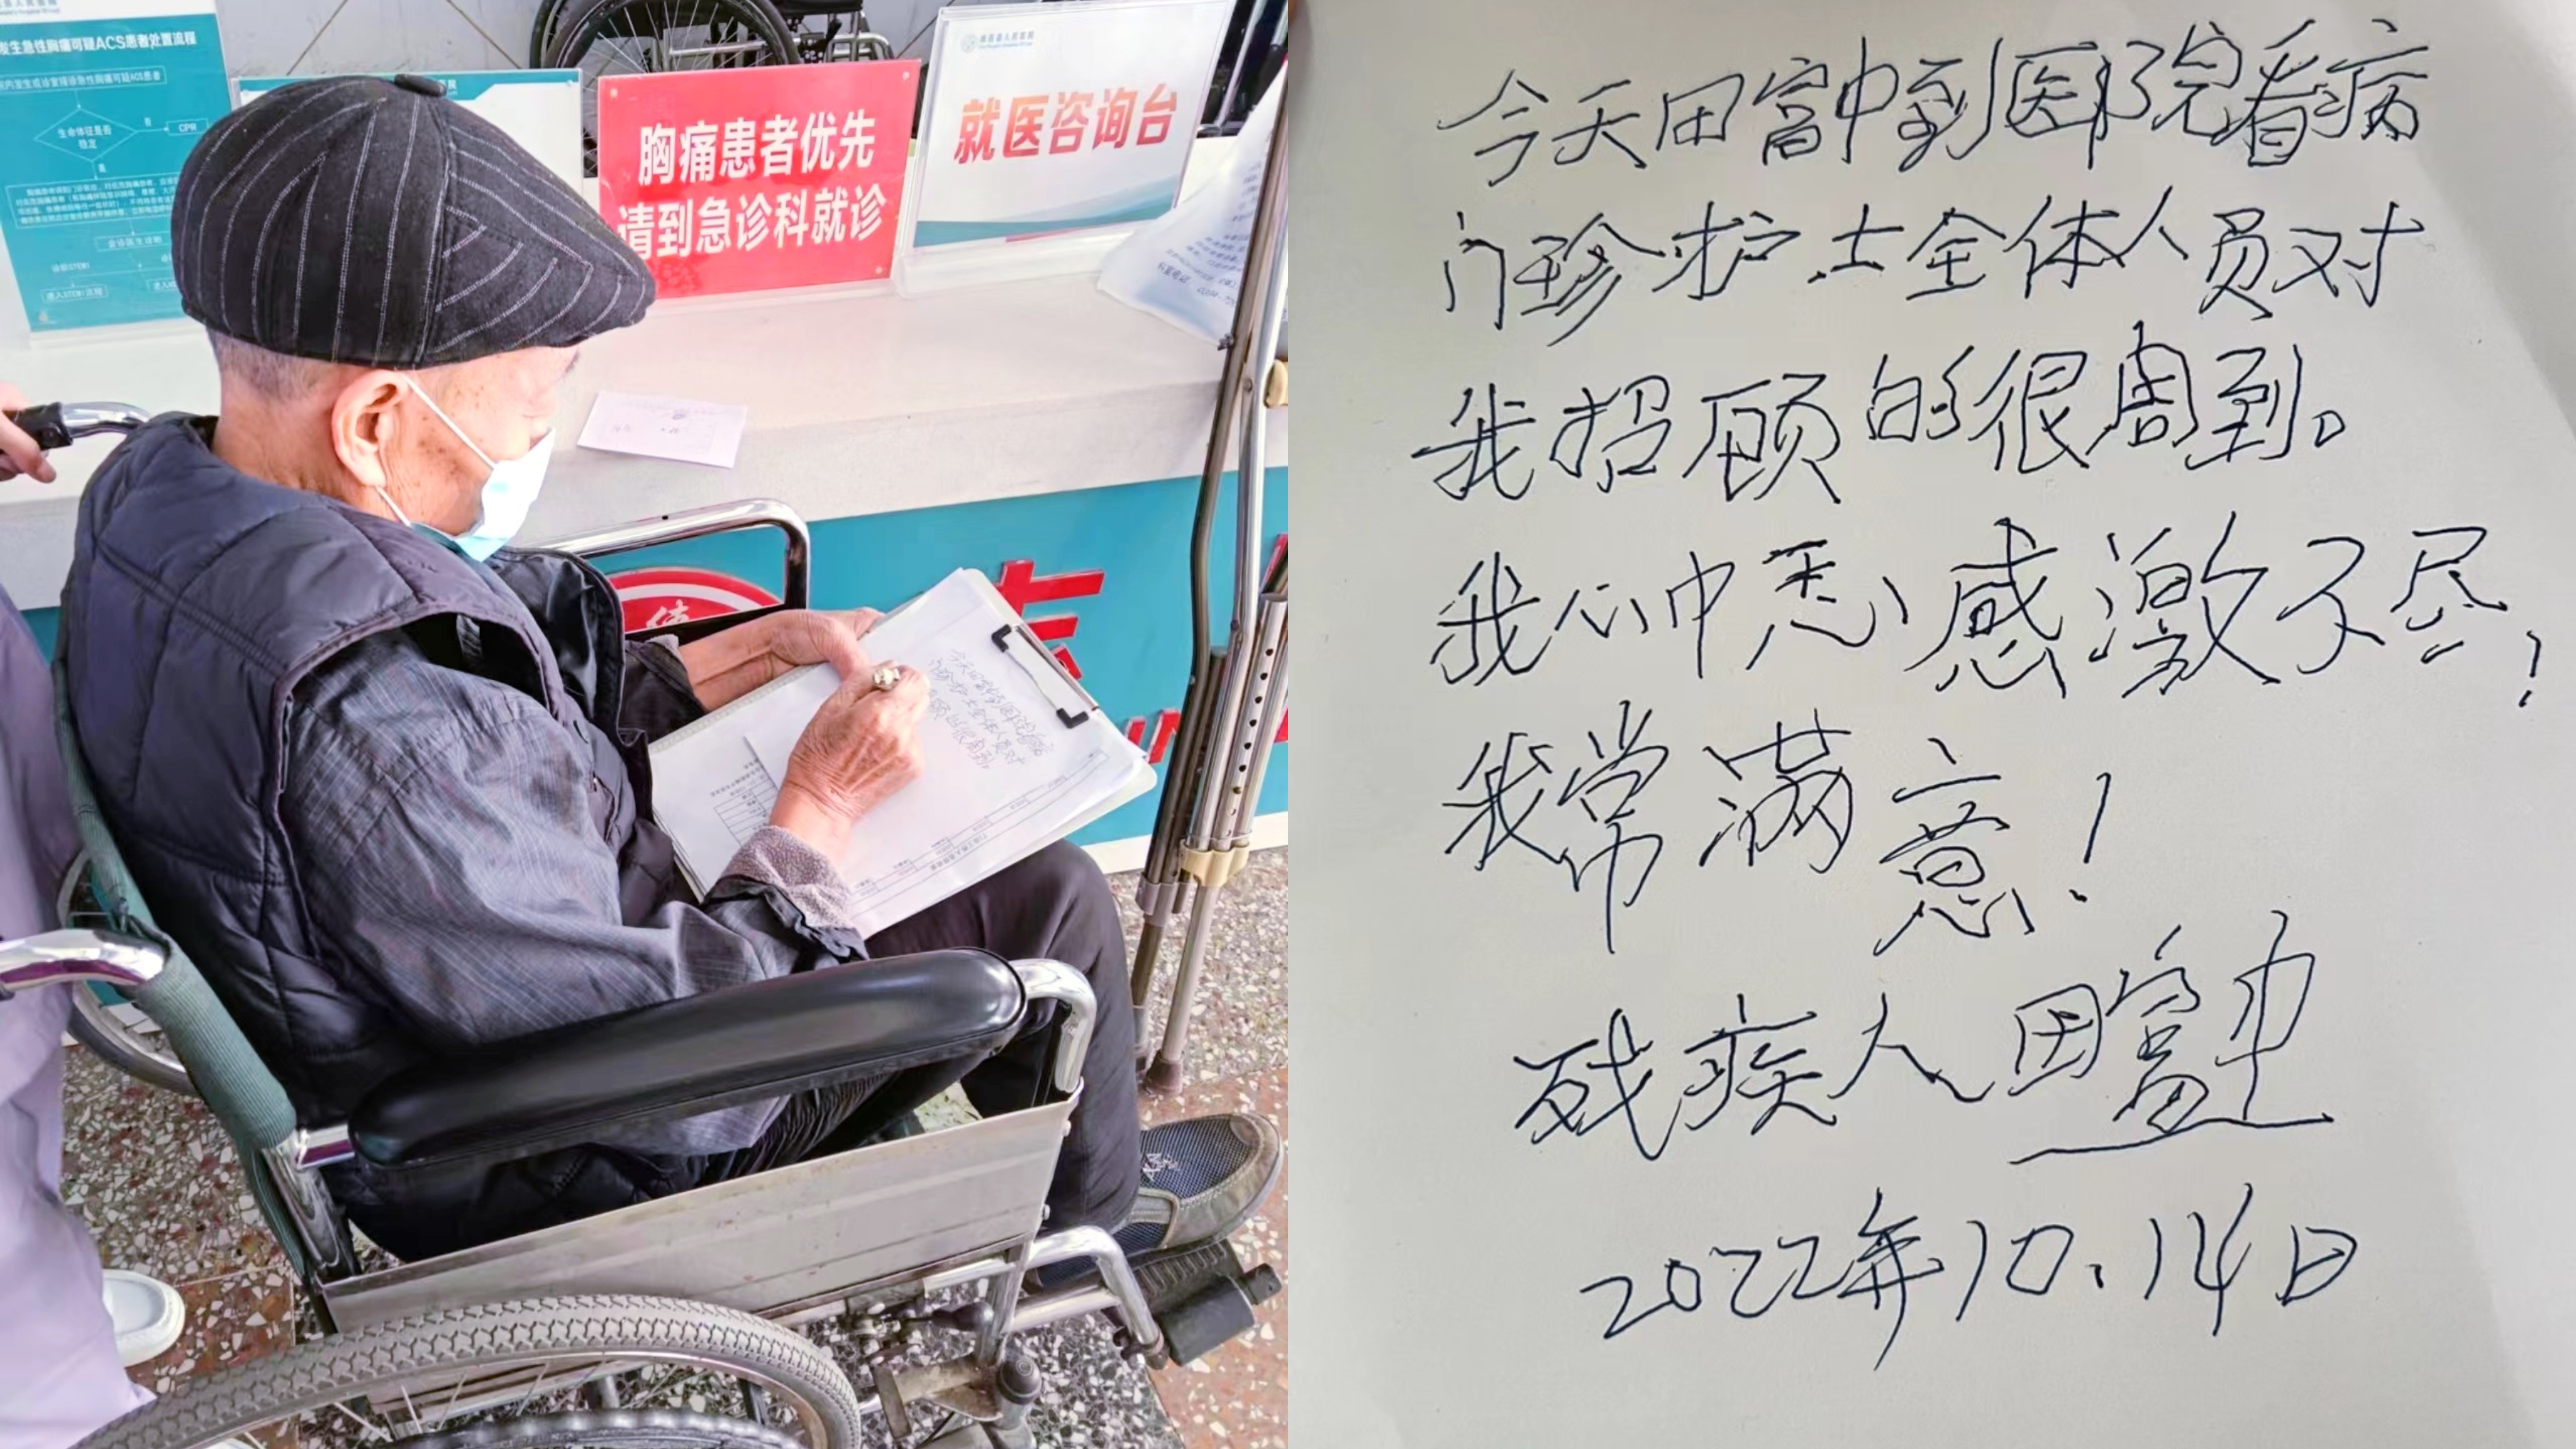 发生急性胸痛可疑ACS患者处置流程
生命体征是否
稳定
否
CPR
是
胸痛患者优先
请到急诊科就诊
就医咨询台
今天田富中到医院看病
门诊护士全体人员对
我招顾的很周到。
我心中悉感激不尽!
我常满意!
残疾人田富忠
2022年10.14日